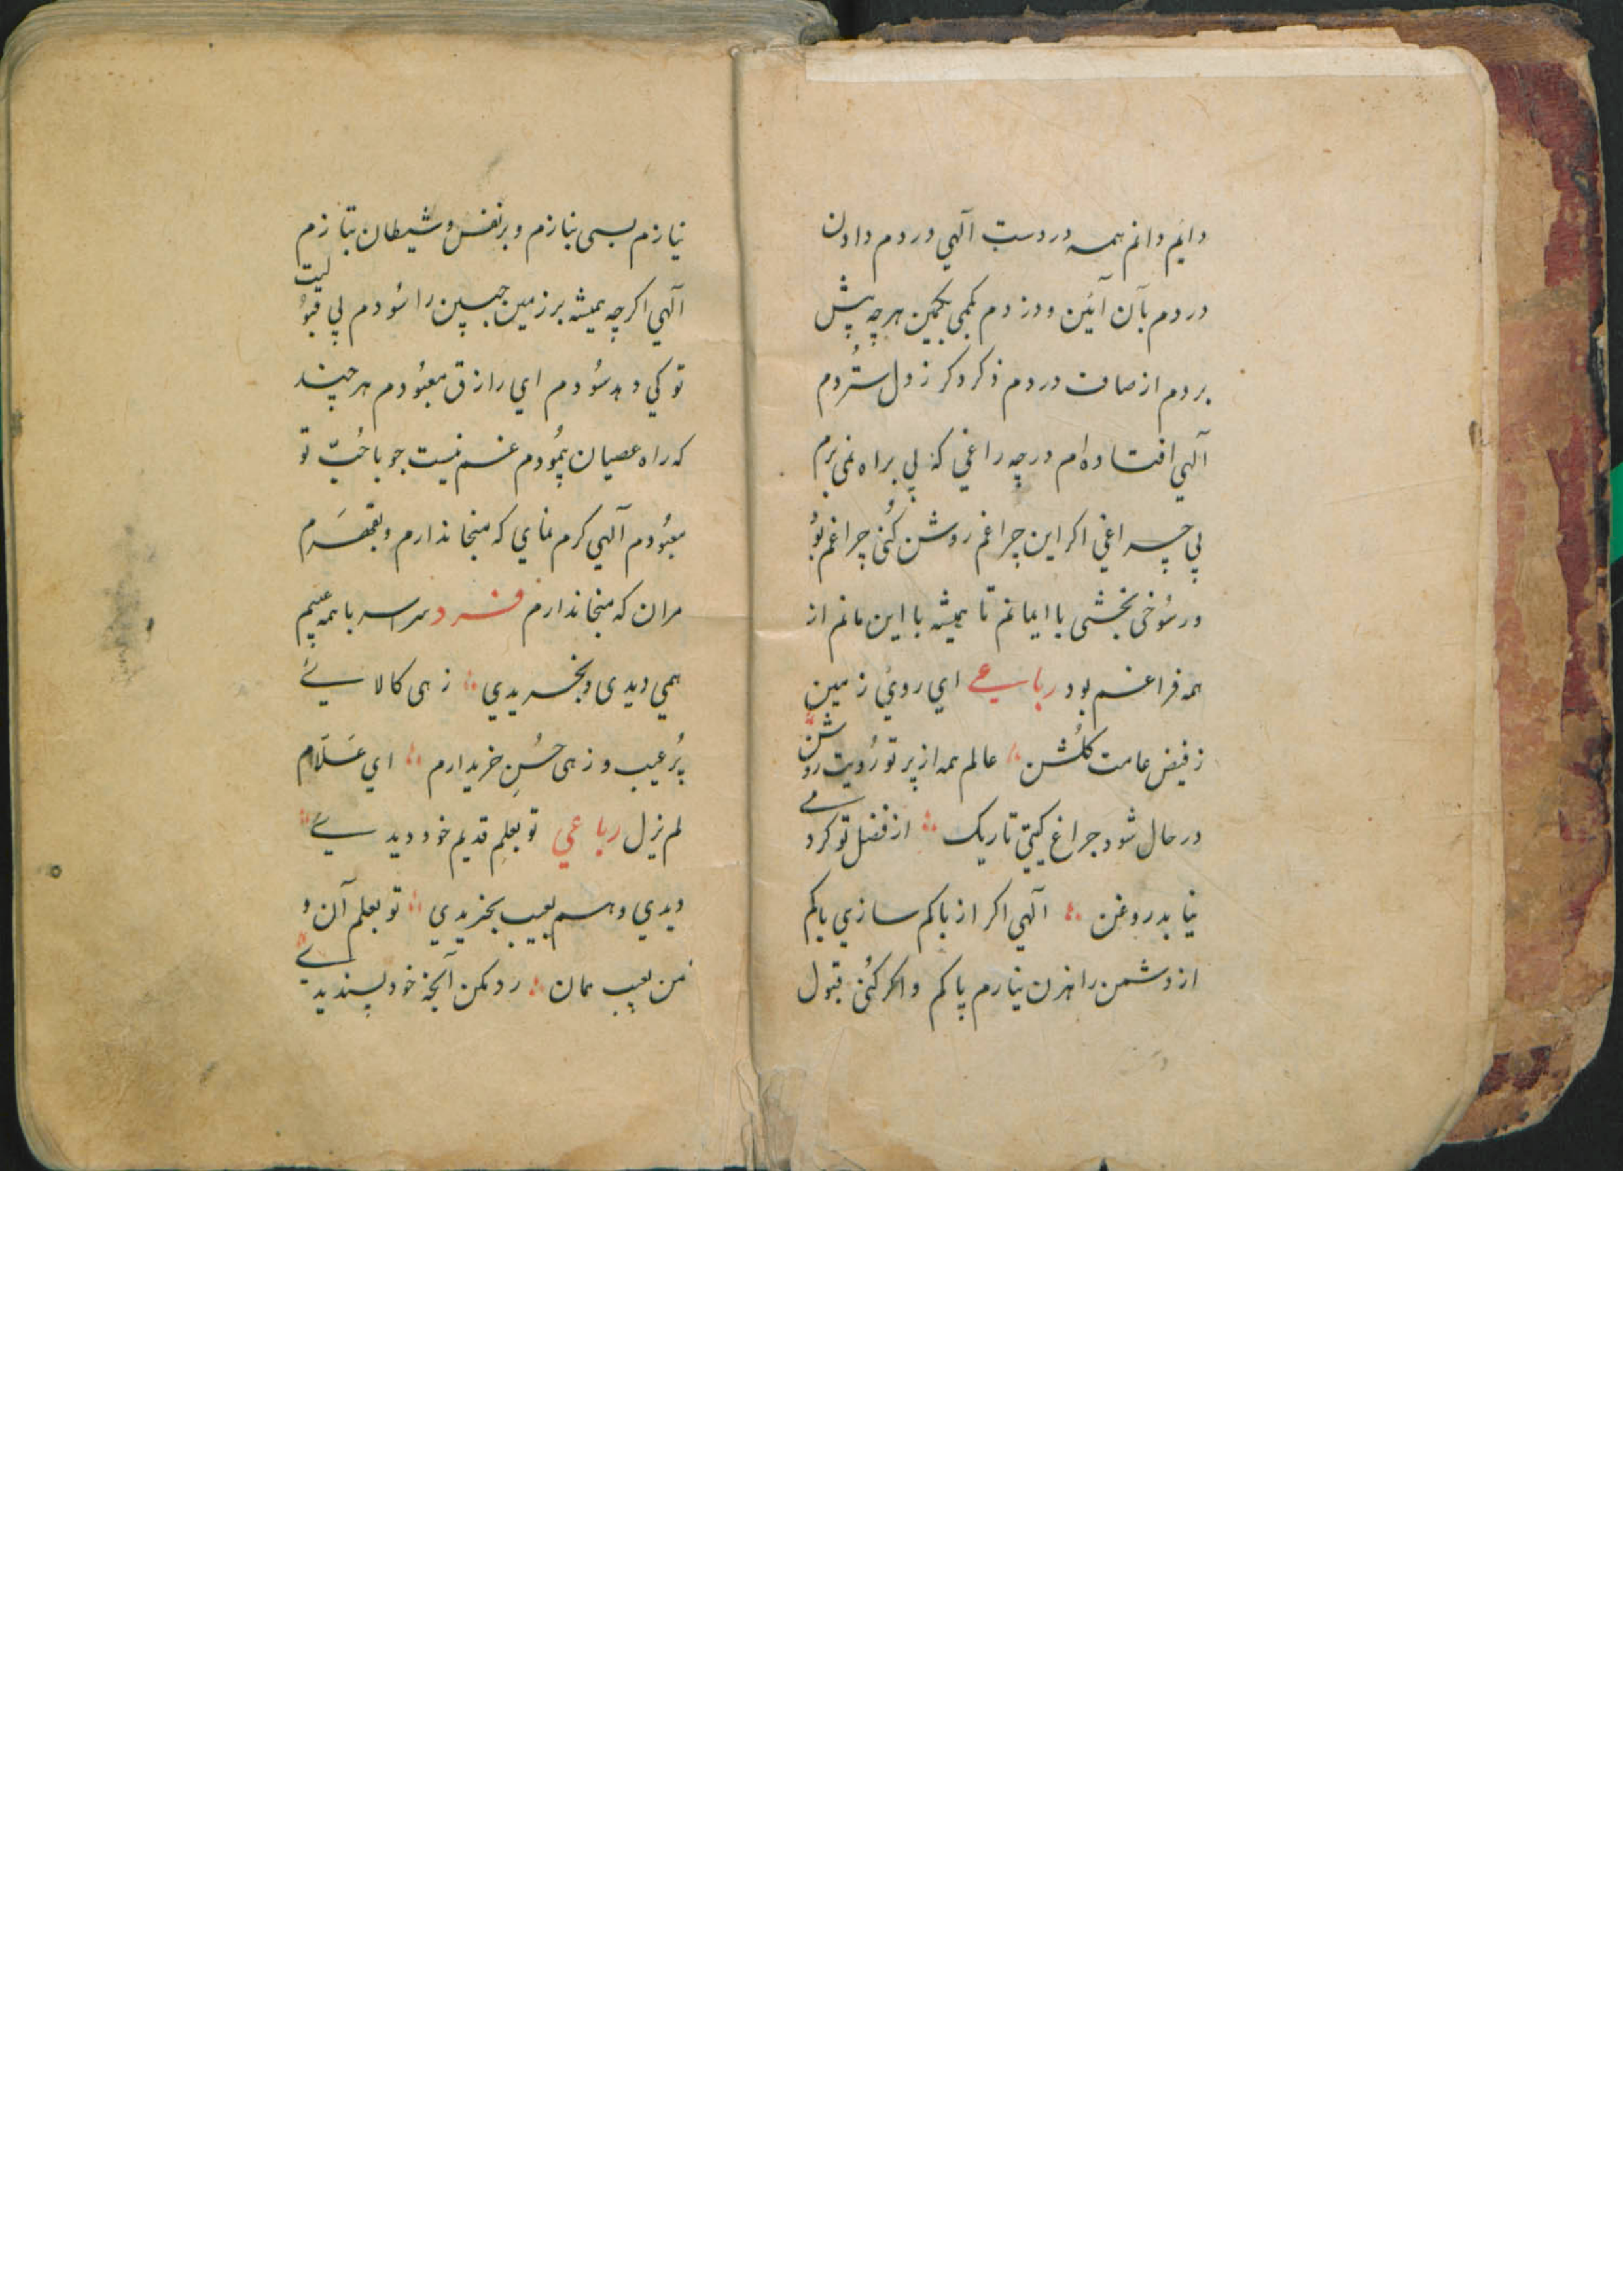 دایم دانم همه در دست آلهي در دم دادن
در دم بآن آئین و دزدم بکمی بکمین هرچه پیش
بردم از صاف دردم ذکر دکر ز دل ستُردم
آلهي افتاده‌ام در چه راغي که پی براه نمی برم
بي چراغي اکر این چراغم روشن کُنی چراغم بوُ
ور سُوخی بخشی با ایمانم تا همیشه با این مانم از
همه فراغم بود رباعے اي رویُ زمین
ز فیض عامت کلُشن عالم همه از پرتو رُویت روشن
در حال شود جراغ کیتي تاریک از فضل تو کر دمے
نیابد روغن آلهي اکر از باکم سازي باکم
از دشمن راهزن نیارم پاکم و اکر کُنی قبول
نیازم بسی بنازم و بر نفس و شیطان بتازم
آلهي اکرچه همیشه بر زمین جبین را سُودم بي قبوُلیت
تو کي دهد سُودم اي رازق معبُودم هر چند
که راه عصیان پیمُودم غم نیست جو با حُبّ تو
معبُودم آلهي کرم نماي که منجا ندارم و بقعرم
مران که منجا ندارم فرد سراسر با همه عیبم
همي دیدی و بخریدي زهی کالائے
پُر عیب و زهی حُسنِ خریدارم اي عَلّام
لم یزل رباعي تو بعلمِ قدیم خود دیدے
دیدي و هم بعیب بخریدي تو بعلم آن و
من بعیب همان رد مکن آنچه خود پسندیدے